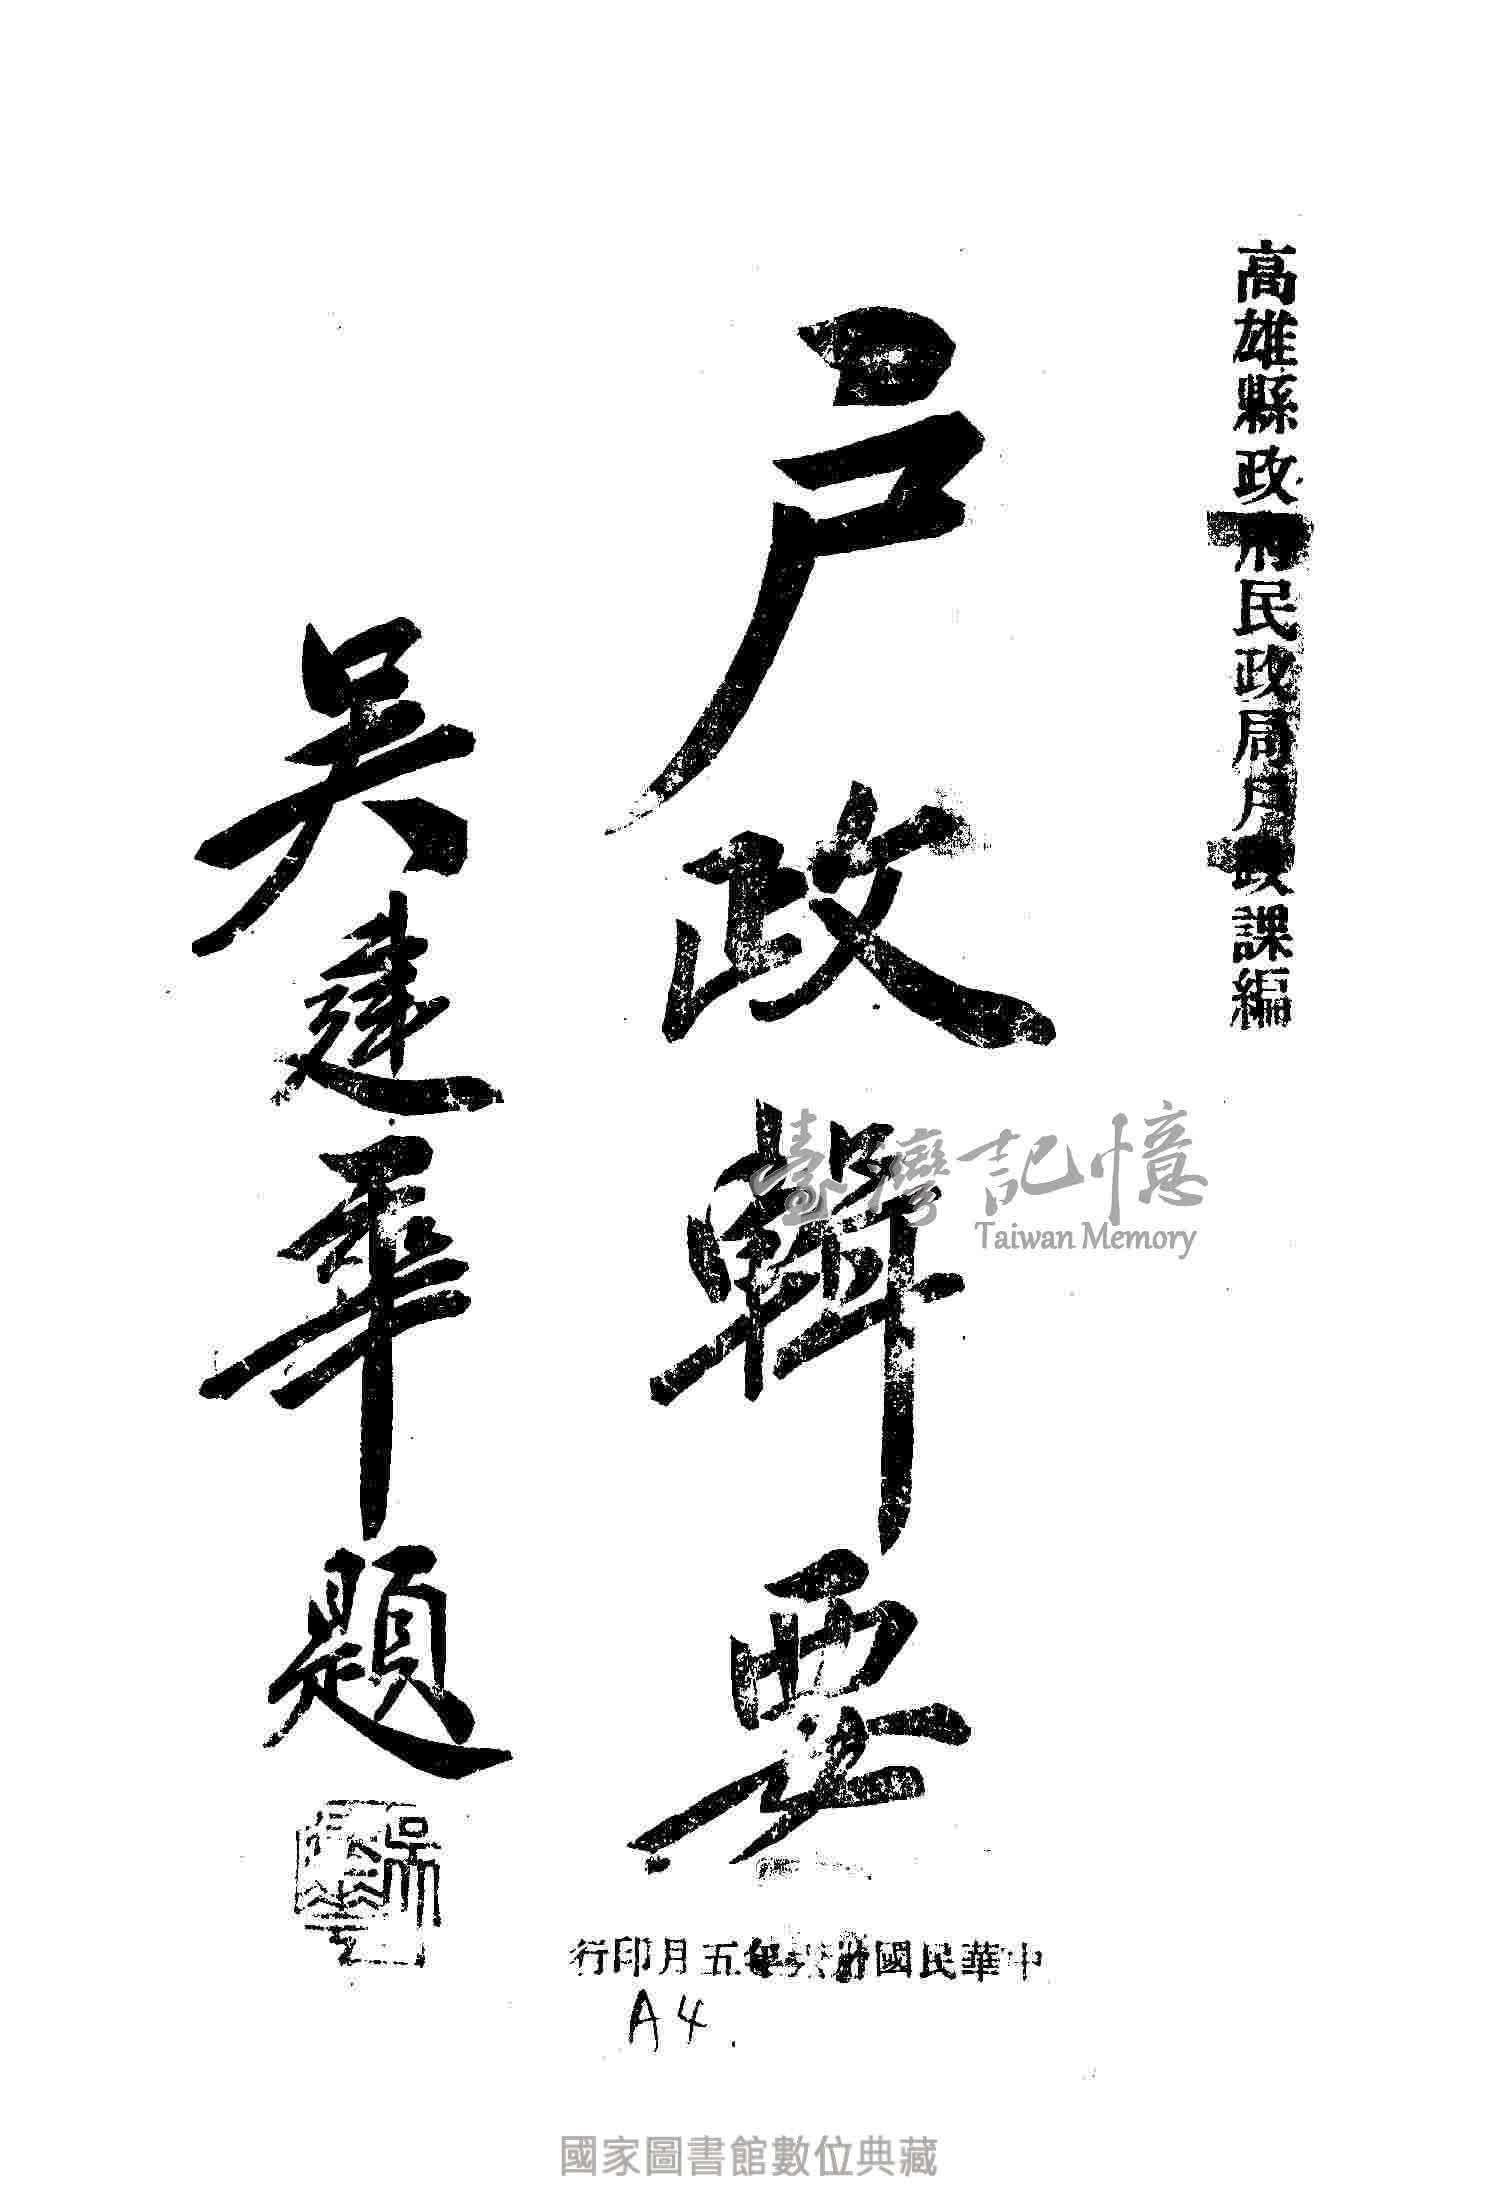 高雄縣政府民政局戶政課編
戶政輯要
吳建華題
中華民國卅六年五月印行
A4.
臺灣記憶
Taiwan Memory
國家圖書館數位典藏